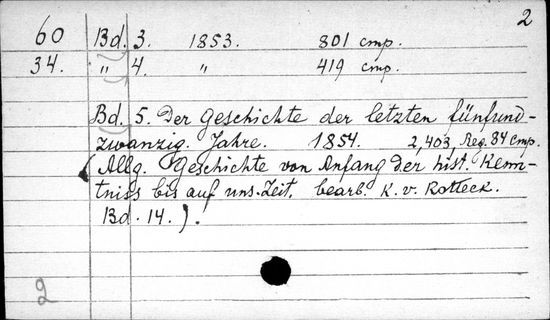 2
60 Bd. 3. 1853. 801 cmp.
34. " 4. " 419 cmp.
Bd. 5. Der Geschichte der letzten fünfund-
zwanzig. Jahre. 1854. 2,403, Reg. 84 cmp.
(Allg. Geschichte von Anfang der hist. Kenn-
tniss bis auf uns. Zeit. bearb. K. v. Rotteck.
Bd. 14.).
2